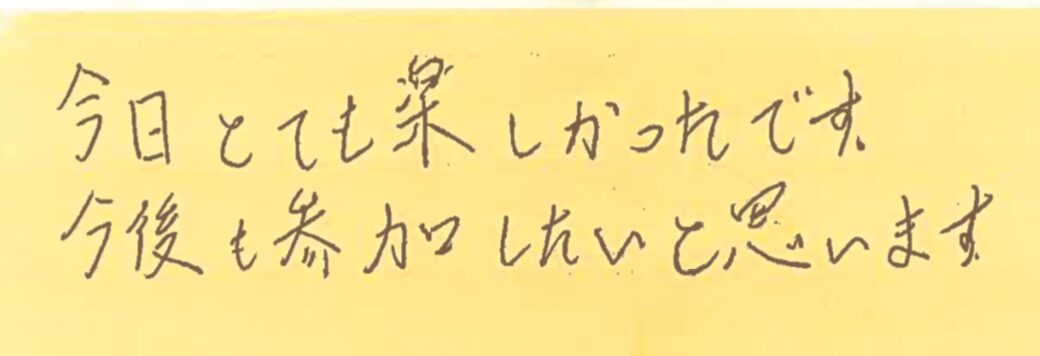 今日とても楽しかったです.
今後も参加したいと思います